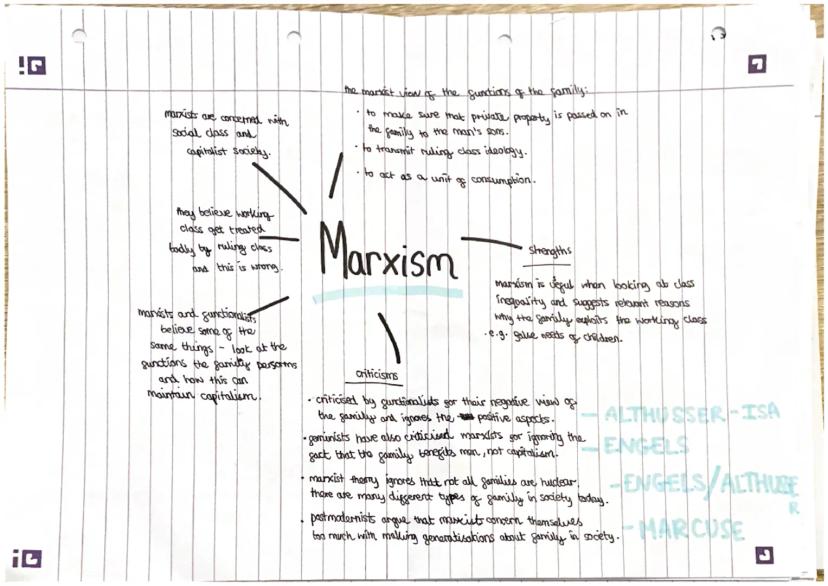 the marxist view of the functions of the family:
· to make sure that private property is passed on in
the family to the man's sons.
· to transmit ruling class ideology.
· to act as a unit of consumption.
marxists are concerned with
social class and
capitalist society.
they believe working
class get treated
badly by ruling class
and this is wrong.
Marxism
strengths
marxism is useful when looking at class
inequality and suggests relevant reasons
why the family exploits the working class
- e.g. false needs of children.
marxists and functionalists
believe some of the
same things - look at the
functions the family performs
and how this can
maintain capitalism.
criticisms
· criticised by functionalists for their negative view of
the family and ignores the positive aspects.
- ALTHUSSER - ISA
· feminists have also criticised marxists for ignoring the
fact that the family benefits men, not capitalism.
- ENGELS
· marxist theory ignores that not all families are nuclear,
there are many different types of family in society today.
- ENGELS/ALTHUSE
R
· postmodernists argue that marxist concern themselves
too much with making generalisations about family in society.
- MARCUSE